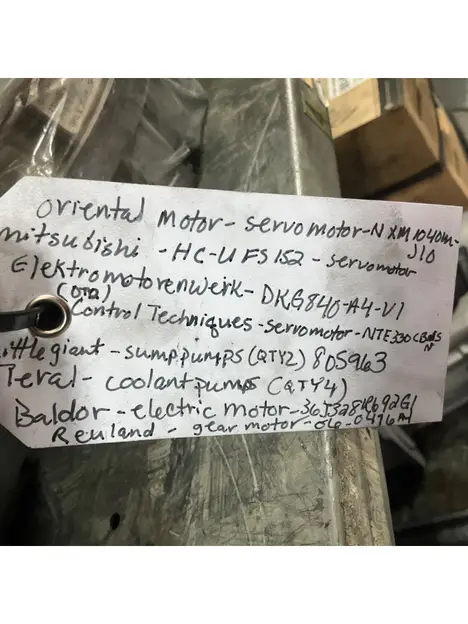 Oriental Motor - servomotor - NXM1040M-
J10
mitsubishi - HC-UFS152 - servomotor
Elektromotorenwerk - DKG840-A4-V1
Control Techniques - servomotor - NTE330
ittlegiant - sump pumps (QTY2) 805963
Teral - coolant pumps (QTY4)
Baldor - electric motor -
Reuland - gear motor